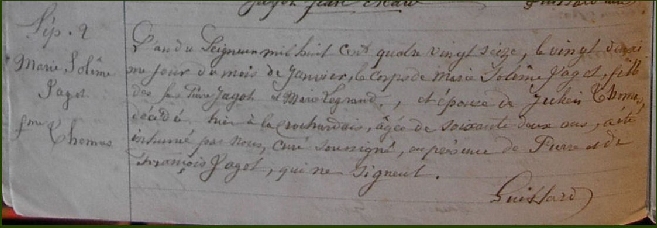 Sép. 9
Marie Solême
Jagot
fme Thomas
L'an du Seigneur mil huit cent quatre vingt seize, le vingt
me jour du mois de Janvier, le corps de Marie Solême Jagot, fille
des feu Pierre Jagot et Marie Legrand, et épouse de Thomas,
décédée hier à la rochardais, âgée de soixante deux ans, a été
inhumé par nous, curé soussigné, en présence de Pierre et de
François Jagot, qui ne signent.
Guissard